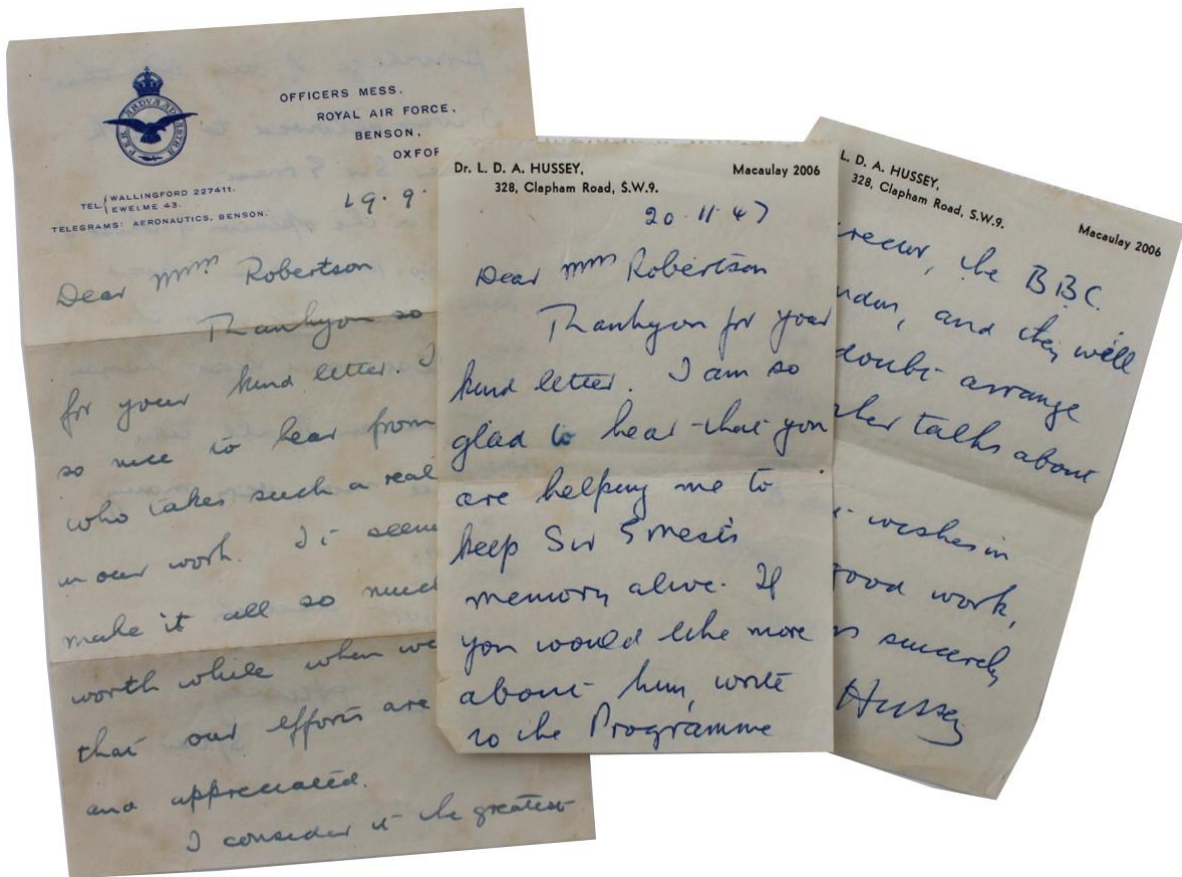 OFFICERS MESS.
ROYAL AIR FORCE,
BENSON,
OXFOR
PER ARDVA AD ASTRA
TEL. WALLINGFORD 227411.
EWELME 43.
TELEGRAMS: AERONAUTICS, BENSON.
19.9.
Dear Mrs Robertson
Thankyou so
for your kind letter. I
so nice to hear from
who takes such a real
in our work. It seem
make it all so much
worth while when we
that our efforts are
and appreciated.
I consider it the greatest
Dr. L. D. A. HUSSEY,
328, Clapham Road, S.W.9.
Macaulay 2006
20.11.47
Dear Mrs Robertson
Thankyou for your
kind letter. I am so
glad to hear that you
are helping me to
keep Sir Ernest's
memory alive. If
you would like more
about him, write
to the Programme
L. D. A. HUSSEY,
328, Clapham Road, S.W.9.
Macaulay 2006
rector, the BBC.
ndon, and they will
doubt arrange
ther talks about
wishes in
good work,
s sincerely
Hussey